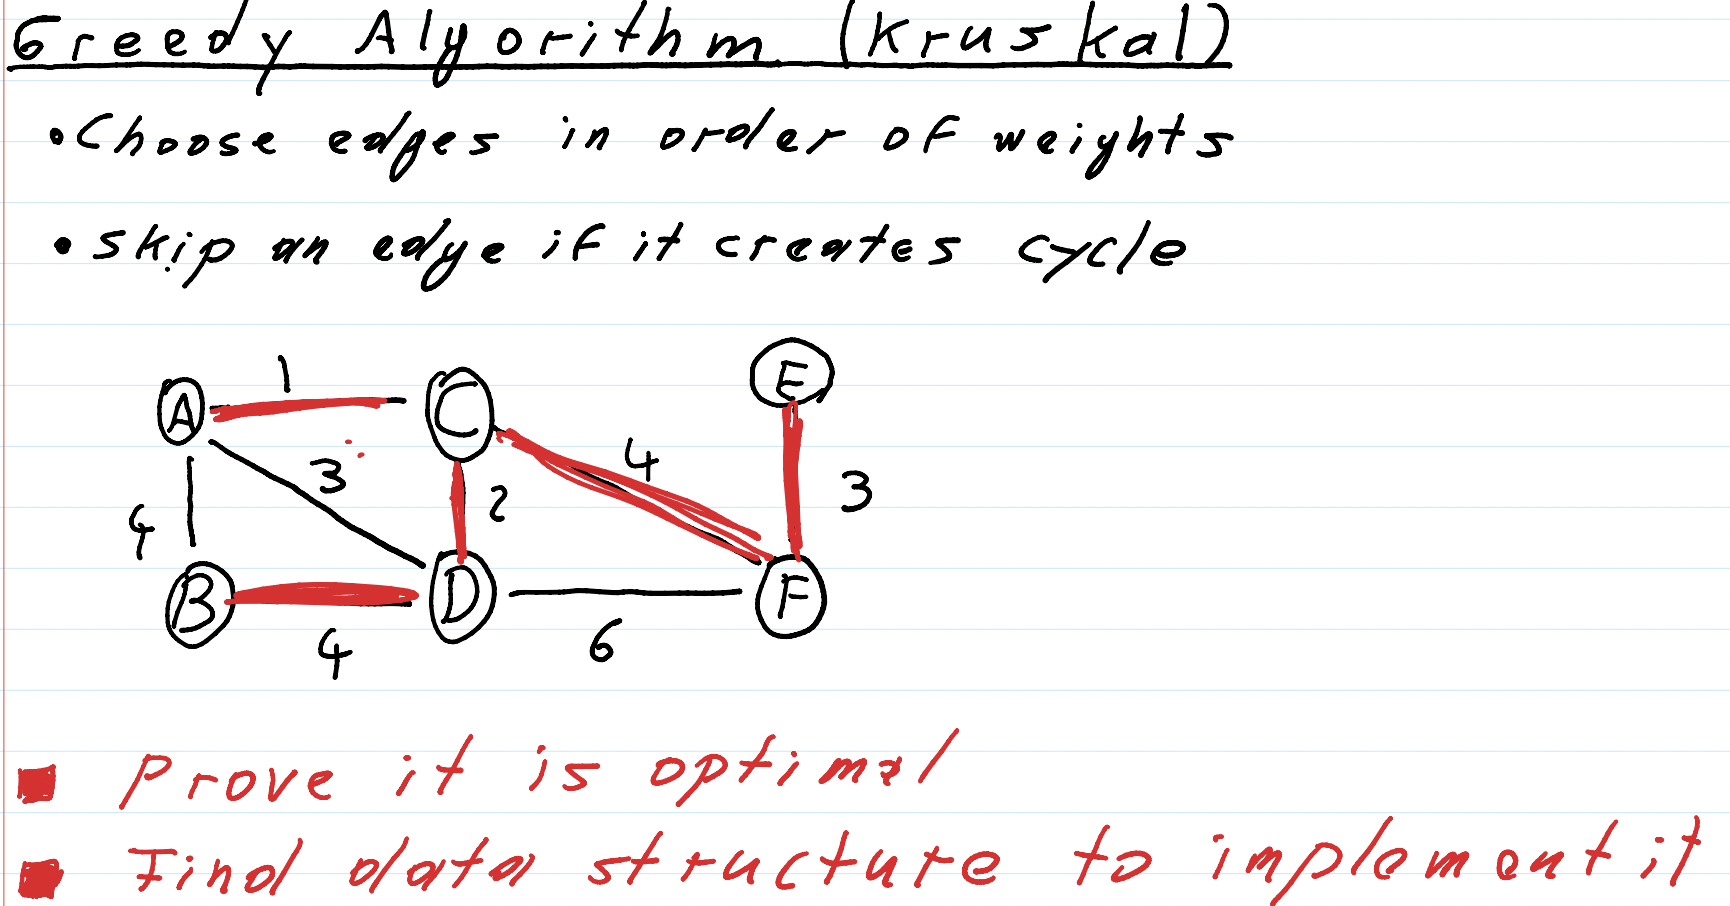 Greedy Algorithm (Kruskal)
• Choose edges in order of weights
• Skip an edge if it creates cycle
1
E
A
C
4
3
2
3
4
B
D
F
4
6
Prove it is optimal
Find data structure to implement it